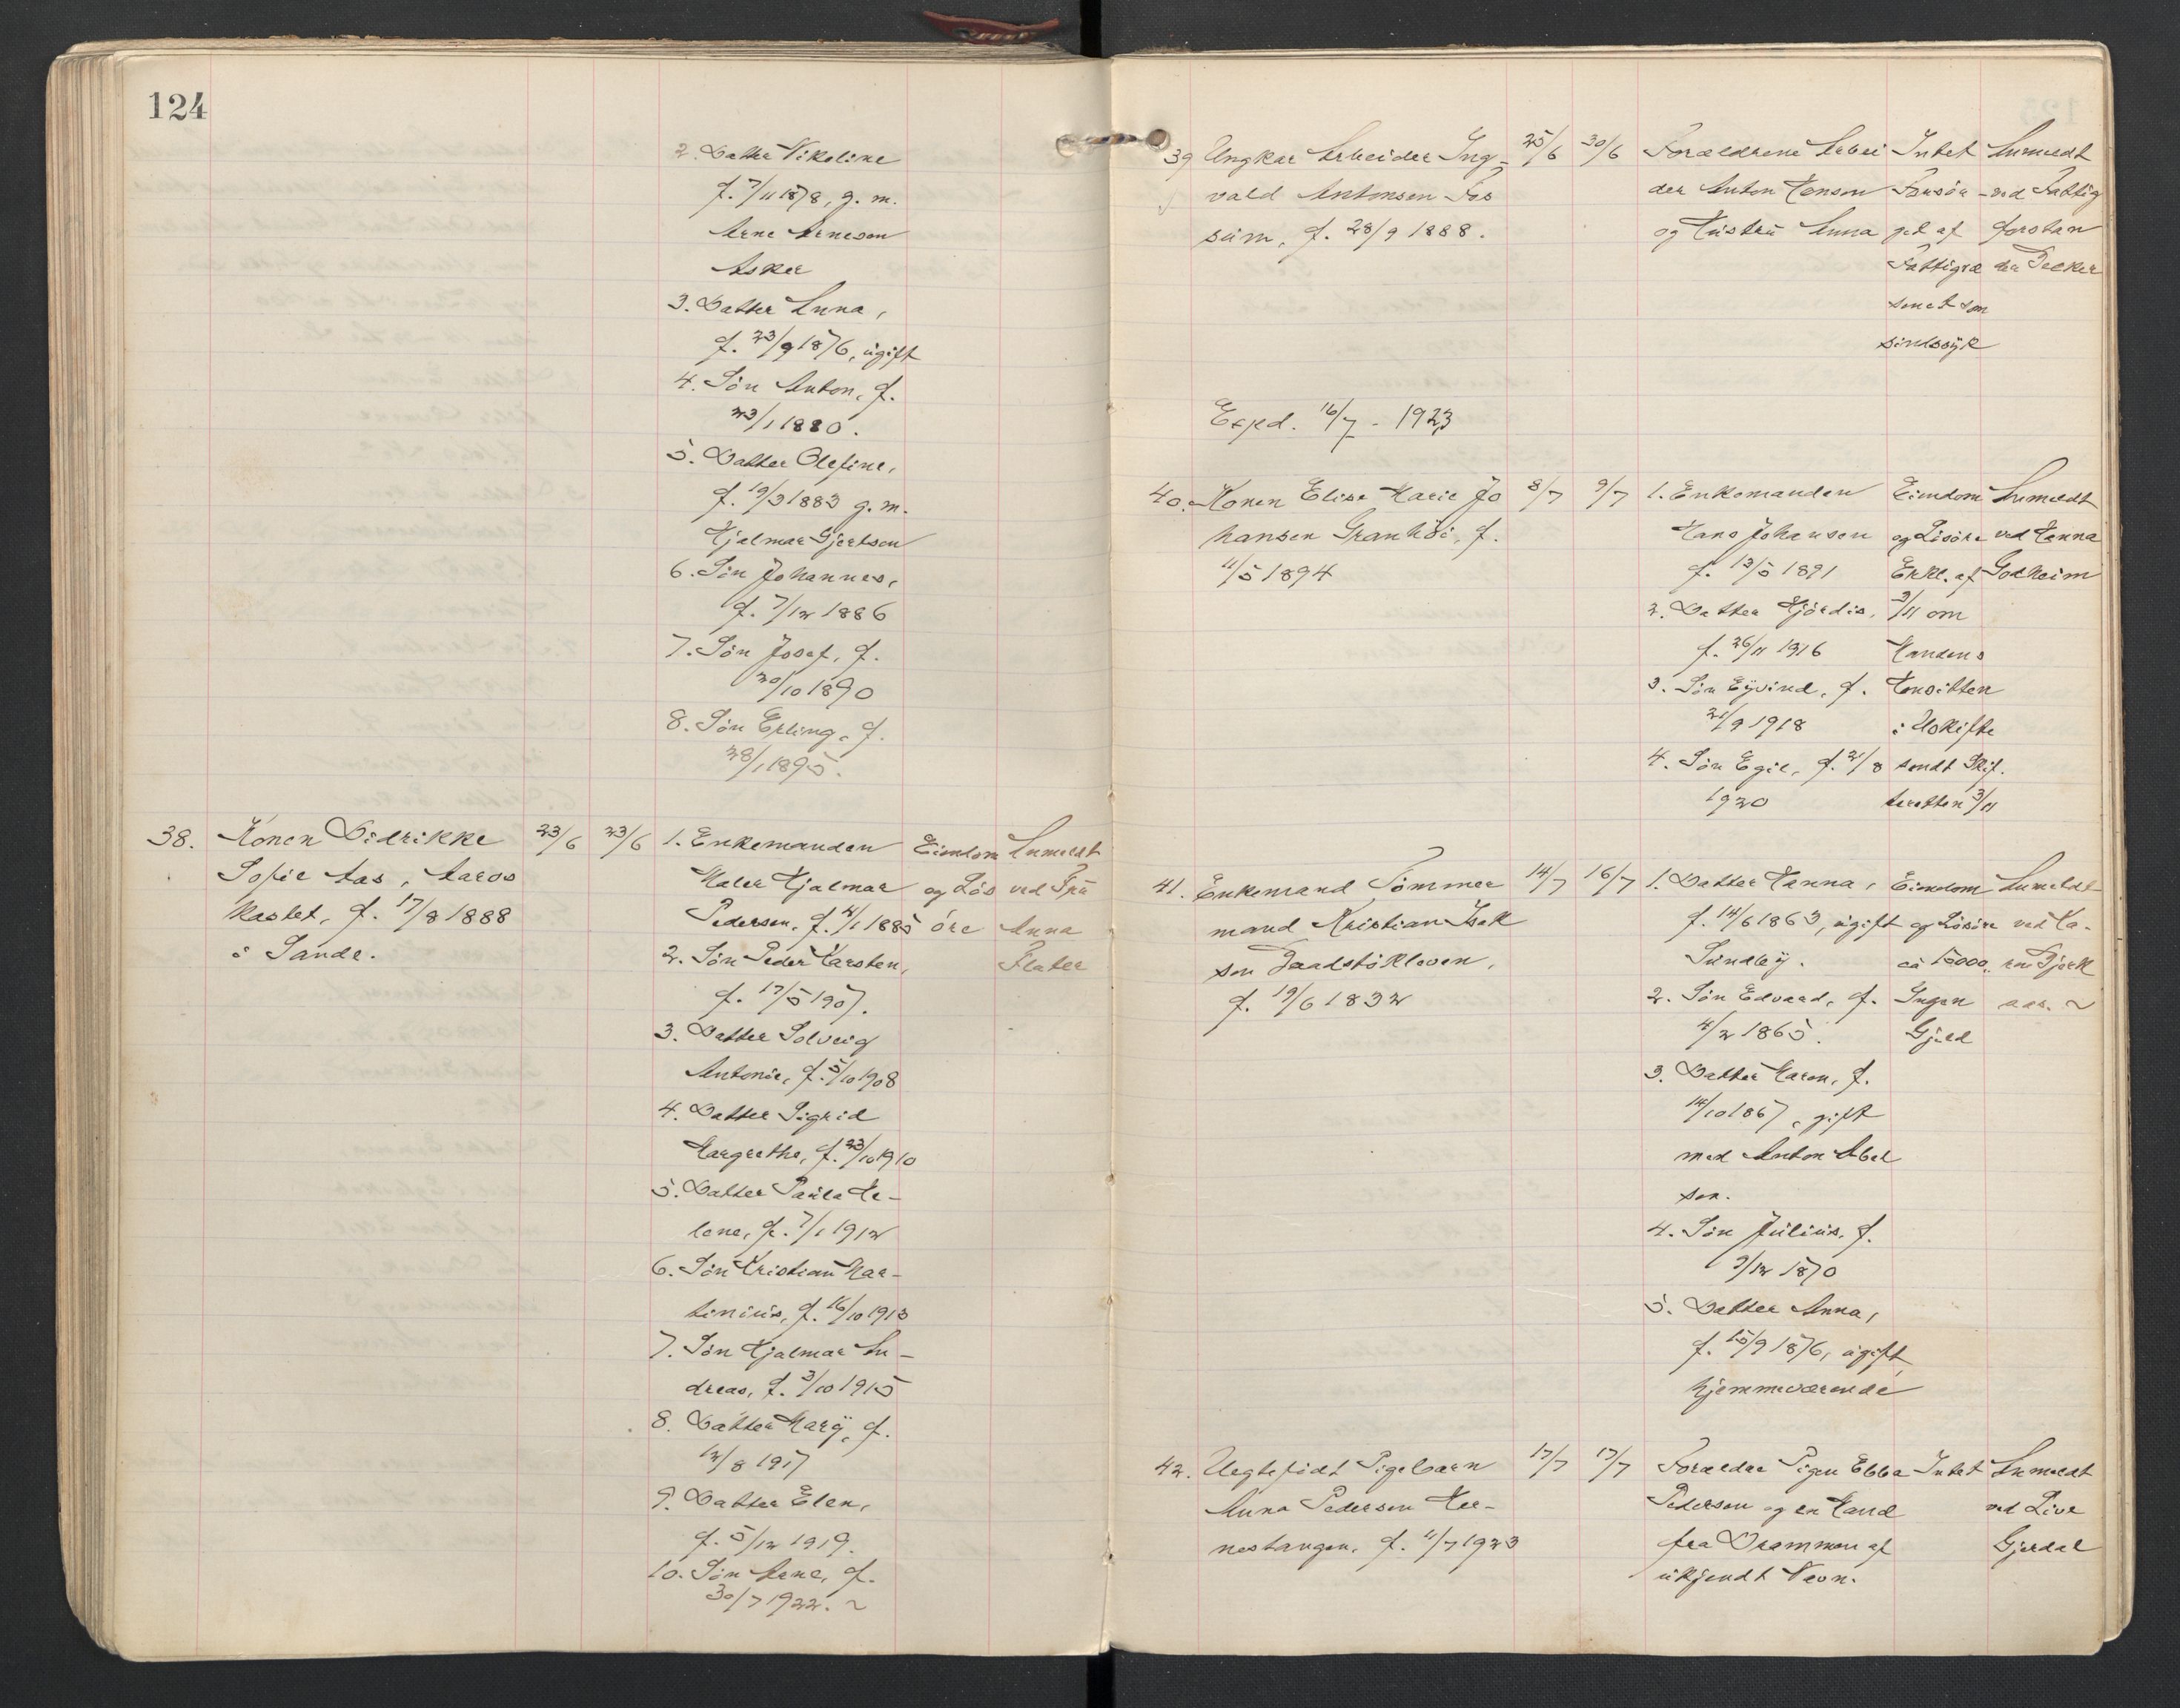 124
2. Datter Nikoline
f. 7/11 1878, g. m.
Arne Arnesen
Asker
3. Datter Anna,
f. 23/9 1876, ugift
4. Søn Anton, f.
23/1 1880.
5. Datter Olefine,
f. 19/3 1883 g. m.
Hjalmar Gjertsen
6. Søn Johannes,
f. 7/12 1886
7. Søn Josef, f.
20/10 1890
8. Søn Erling, f.
28/1 1895.
38. Konen Didrikke 23/6 23/6 1. Enkemanden Eiendom Anmeldt
Sofie Aas, Aaros Maler Hjalmar og Løs ved Fru
kastet, f. 17/8 1888 Pedersen, f. 4/1 1885 öre Anna
i Sande. 2. Søn Peder Karsten, Flater
f. 17/5 1907.
3. Datter Solveig
Antonie, f. 5/10 1908
4. Datter Sigrid
Margrethe, f. 23/10 1910
5. Datter Paula He-
lene, f. 7/1 1912
6. Søn Kristian Mar-
tinius, f. 16/10 1913
7. Søn Hjalmar An-
dreas, f. 3/10 1915
8. Datter Mary, f.
12/8 1917
9. Datter Elen,
f. 5/12 1919.
10. Søn Arne, f.
30/7 1922. ~
39 Ungkar Arbeider Ing- 25/6 30/6 Forældrene Arbei Intet Anmeldt
vald Antonsen Fos der Anton Hansen Forsör- ved Fattig
sum, f. 28/9 1888. og Hustru Anna get af forstan
Fattigvæ der Decker
senet som
sindssyk
Exped. 16/7 - 1923
40. Konen Elise Marie Jo 8/7 9/7 1. Enkemanden Eiendom Anmeldt
hansen Granhöi, f. Hans Johansen og Lösöre ved Hanna
11/5 1894 f. 13/5 1891 Erkl. af Godheim
2. Datter Hjördis, 3/11 om
f. 26/11 1916 Mandens
3. Søn Eyvind, f. Hensitten
21/9 1918 i Uskifte
4. Søn Egil, f. 21/8 sendt Skif.
1920 teretten 3/11
41. Enkemand Tömmer 14/7 16/7 1. Datter Hanna, Eiendom Anmeldt
mand Kristian Isak f. 14/6 1863, ugift og Lösöre ved Ma-
sen Sundby. ca 15000.
f. 19/6 1832 2. Søn Edvard, f. Ingen
4/2 1865. Gjæld
3. Datter Maren, f.
14/10 1867, gift
med Anton Abel
sen.
4. Søn Julius, f.
9/12 1870
5. Datter Anna,
f. 15/9 1876, ugift,
hjemmeværende
42. Uegtefödt Pigebarn 17/7 17/7 Forældre Pigen Ebba Intet Anmeldt
Anna Pedersen Her- Pedersen og en Mand ved Live
nestangen, f. 11/7 1923 fra Drammen af Gjerdal
ukjendt Navn.